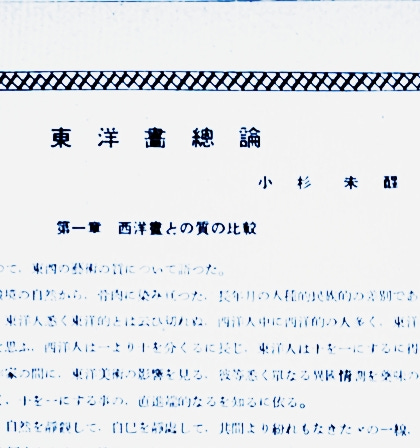 東洋畫總論
小杉未醒
第一章 西洋畫との質の比較
つて、東西の藝術の質について語つた。
環境の自然から、骨肉に染み亙つた、長年月の人種的民族的の差別であ
、東洋人悉く東洋的とは云ひ切れぬ、西洋人中に西洋的の人多く、東洋
と思ふ、西洋人は一より十を分くるに長じ、東洋人は十を一にするに得
家の間に、東洋美術の影響を見る、彼等悉く單なる異國情趣を愛味の
く、十を一にする事の、直正端的なるを知るに依る。
自然を靜觀して、自己を靜慮して、共間より紛れもなきたゞの一線、